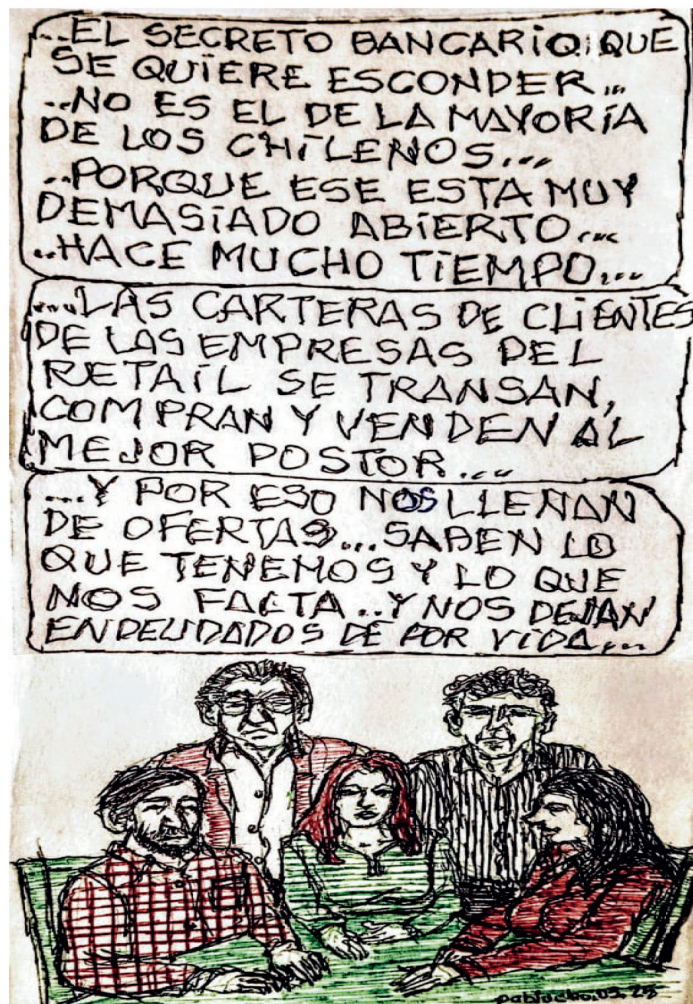 ...EL SECRETO BANCARIO, QUE
SE QUIERE ESCONDER...
...NO ES EL DE LA MAYORÍA
DE LOS CHILENOS...
...PORQUE ESE ESTA MUY
DEMASIADO ABIERTO...
...HACE MUCHO TIEMPO...
...LAS CARTERAS DE CLIENTES
DE LAS EMPRESAS DEL
RETAIL SE TRANSAN,
COMPRAN Y VENDEN AL
MEJOR POSTOR...
...Y POR ESO NOS LLENAN
DE OFERTAS...SABEN LO
QUE TENEMOS Y LO QUE
NOS FALTA...Y NOS DEJAN
ENDEUDADOS DE POR VIDA...